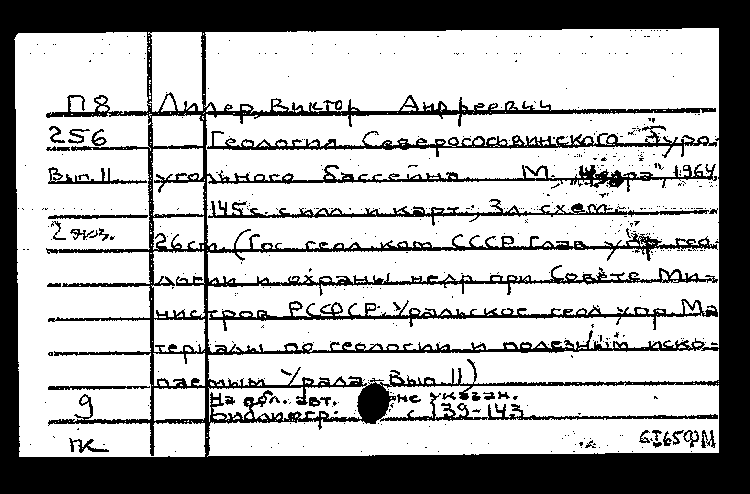 П8 Лидер, Виктор Андреевич
256 Геология Северососьвинского буро-
Вып. 11 угольного бассейна. М., "Недра", 1964
145 с. с илл. и карт.; 3 л. схем.
2 экз. 26 см. (Гос. геол. ком. СССР. Глав. упр. гео-
логии и охраны недр при Совете Ми-
нистров РСФСР. Уральское геол. упр. Ма-
териалы по геологии и полезным иско-
паемым Урала. Вып. 11)
9 На обл. авт. не указан.
Библиогр.: с. 139-143.
ПК